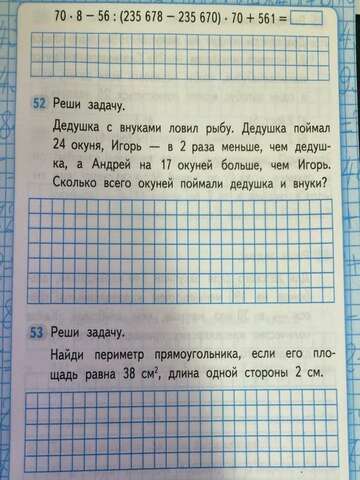 70 · 8 − 56 : (235 678 − 235 670) · 70 + 561 =
52 Реши задачу.
Дедушка с внуками ловил рыбу. Дедушка поймал
24 окуня, Игорь — в 2 раза меньше, чем дедуш-
ка, а Андрей на 17 окуней больше, чем Игорь.
Сколько всего окуней поймали дедушка и внуки?
53 Реши задачу.
Найди периметр прямоугольника, если его пло-
щадь равна 38 см², длина одной стороны 2 см.